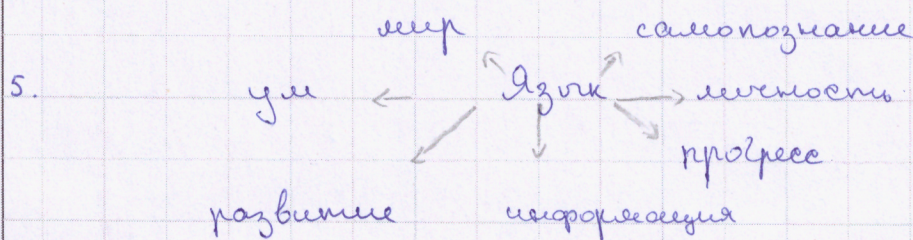 мир самопознание
5. ум Язык личность
прогресс
развитие информация